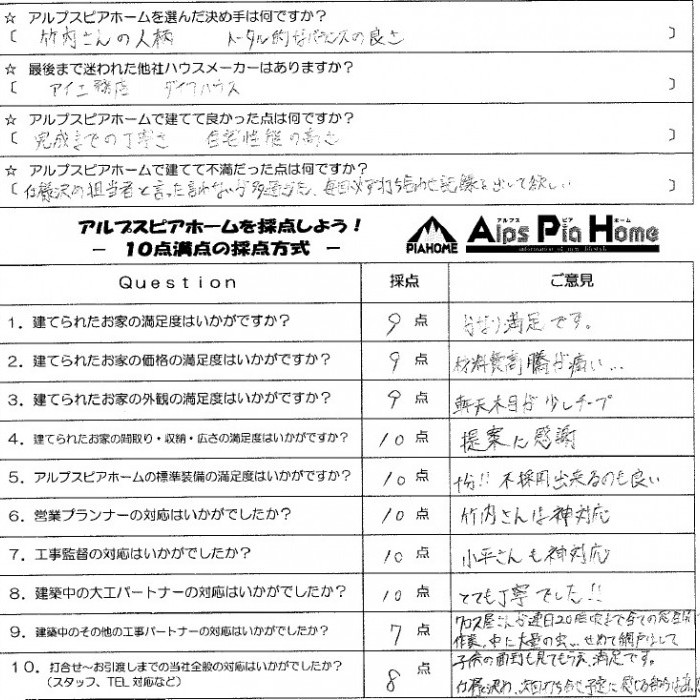 ☆ アルプスピアホームを選んだ決め手は何ですか?
〔 竹内さんの人柄 トータル的なバランスの良さ 〕
☆ 最後まで迷われた他社ハウスメーカーはありますか?
〔 アイ工務店 ダイワハウス 〕
☆ アルプスピアホームで建てて良かった点は何ですか?
〔 完成までの丁寧さ 住宅性能の高さ 〕
☆ アルプスピアホームで建てて不満だった点は何ですか?
〔 仕様決め担当者と言った言わないが多過ぎた、毎回必ず打ち合わせ記録を出して欲しい 〕
アルプスピアホームを採点しよう!
− 10点満点の採点方式 −
PIAHOME
アルプス ピア ホーム
Alps Pia Home
Question 採点 ご意見
1. 建てられたお家の満足度はいかがですか? 9 点 かなり満足です。
2. 建てられたお家の価格の満足度はいかがですか? 9 点 材料費高騰が痛い...
3. 建てられたお家の外観の満足度はいかがですか? 9 点 軒天木目が少しチープ
4. 建てられたお家の間取り・収納・広さの満足度はいかがですか? 10 点 提案に感謝
5. アルプスピアホームの標準装備の満足度はいかがですか? 10 点 十分!! 不採用出来るのも良い
6. 営業プランナーの対応はいかがでしたか? 10 点 竹内さんは神対応
7. 工事監督の対応はいかがでしたか? 10 点 小平さんも神対応
8. 建築中の大工パートナーの対応はいかがでしたか? 10 点 とても丁寧でした!!
9. 建築中のその他の工事パートナーの対応はいかがでしたか? 7 点 クロス屋さんが連日20時頃まで全ての窓全開
作業、中に大量の虫... せめて網戸少して
10. 打合せ~お引渡しまでの当社全般の対応はいかがでしたか?
(スタッフ、TEL 対応など) 8 点 子供の面倒も見てもらえ、満足です。
仕様決め、